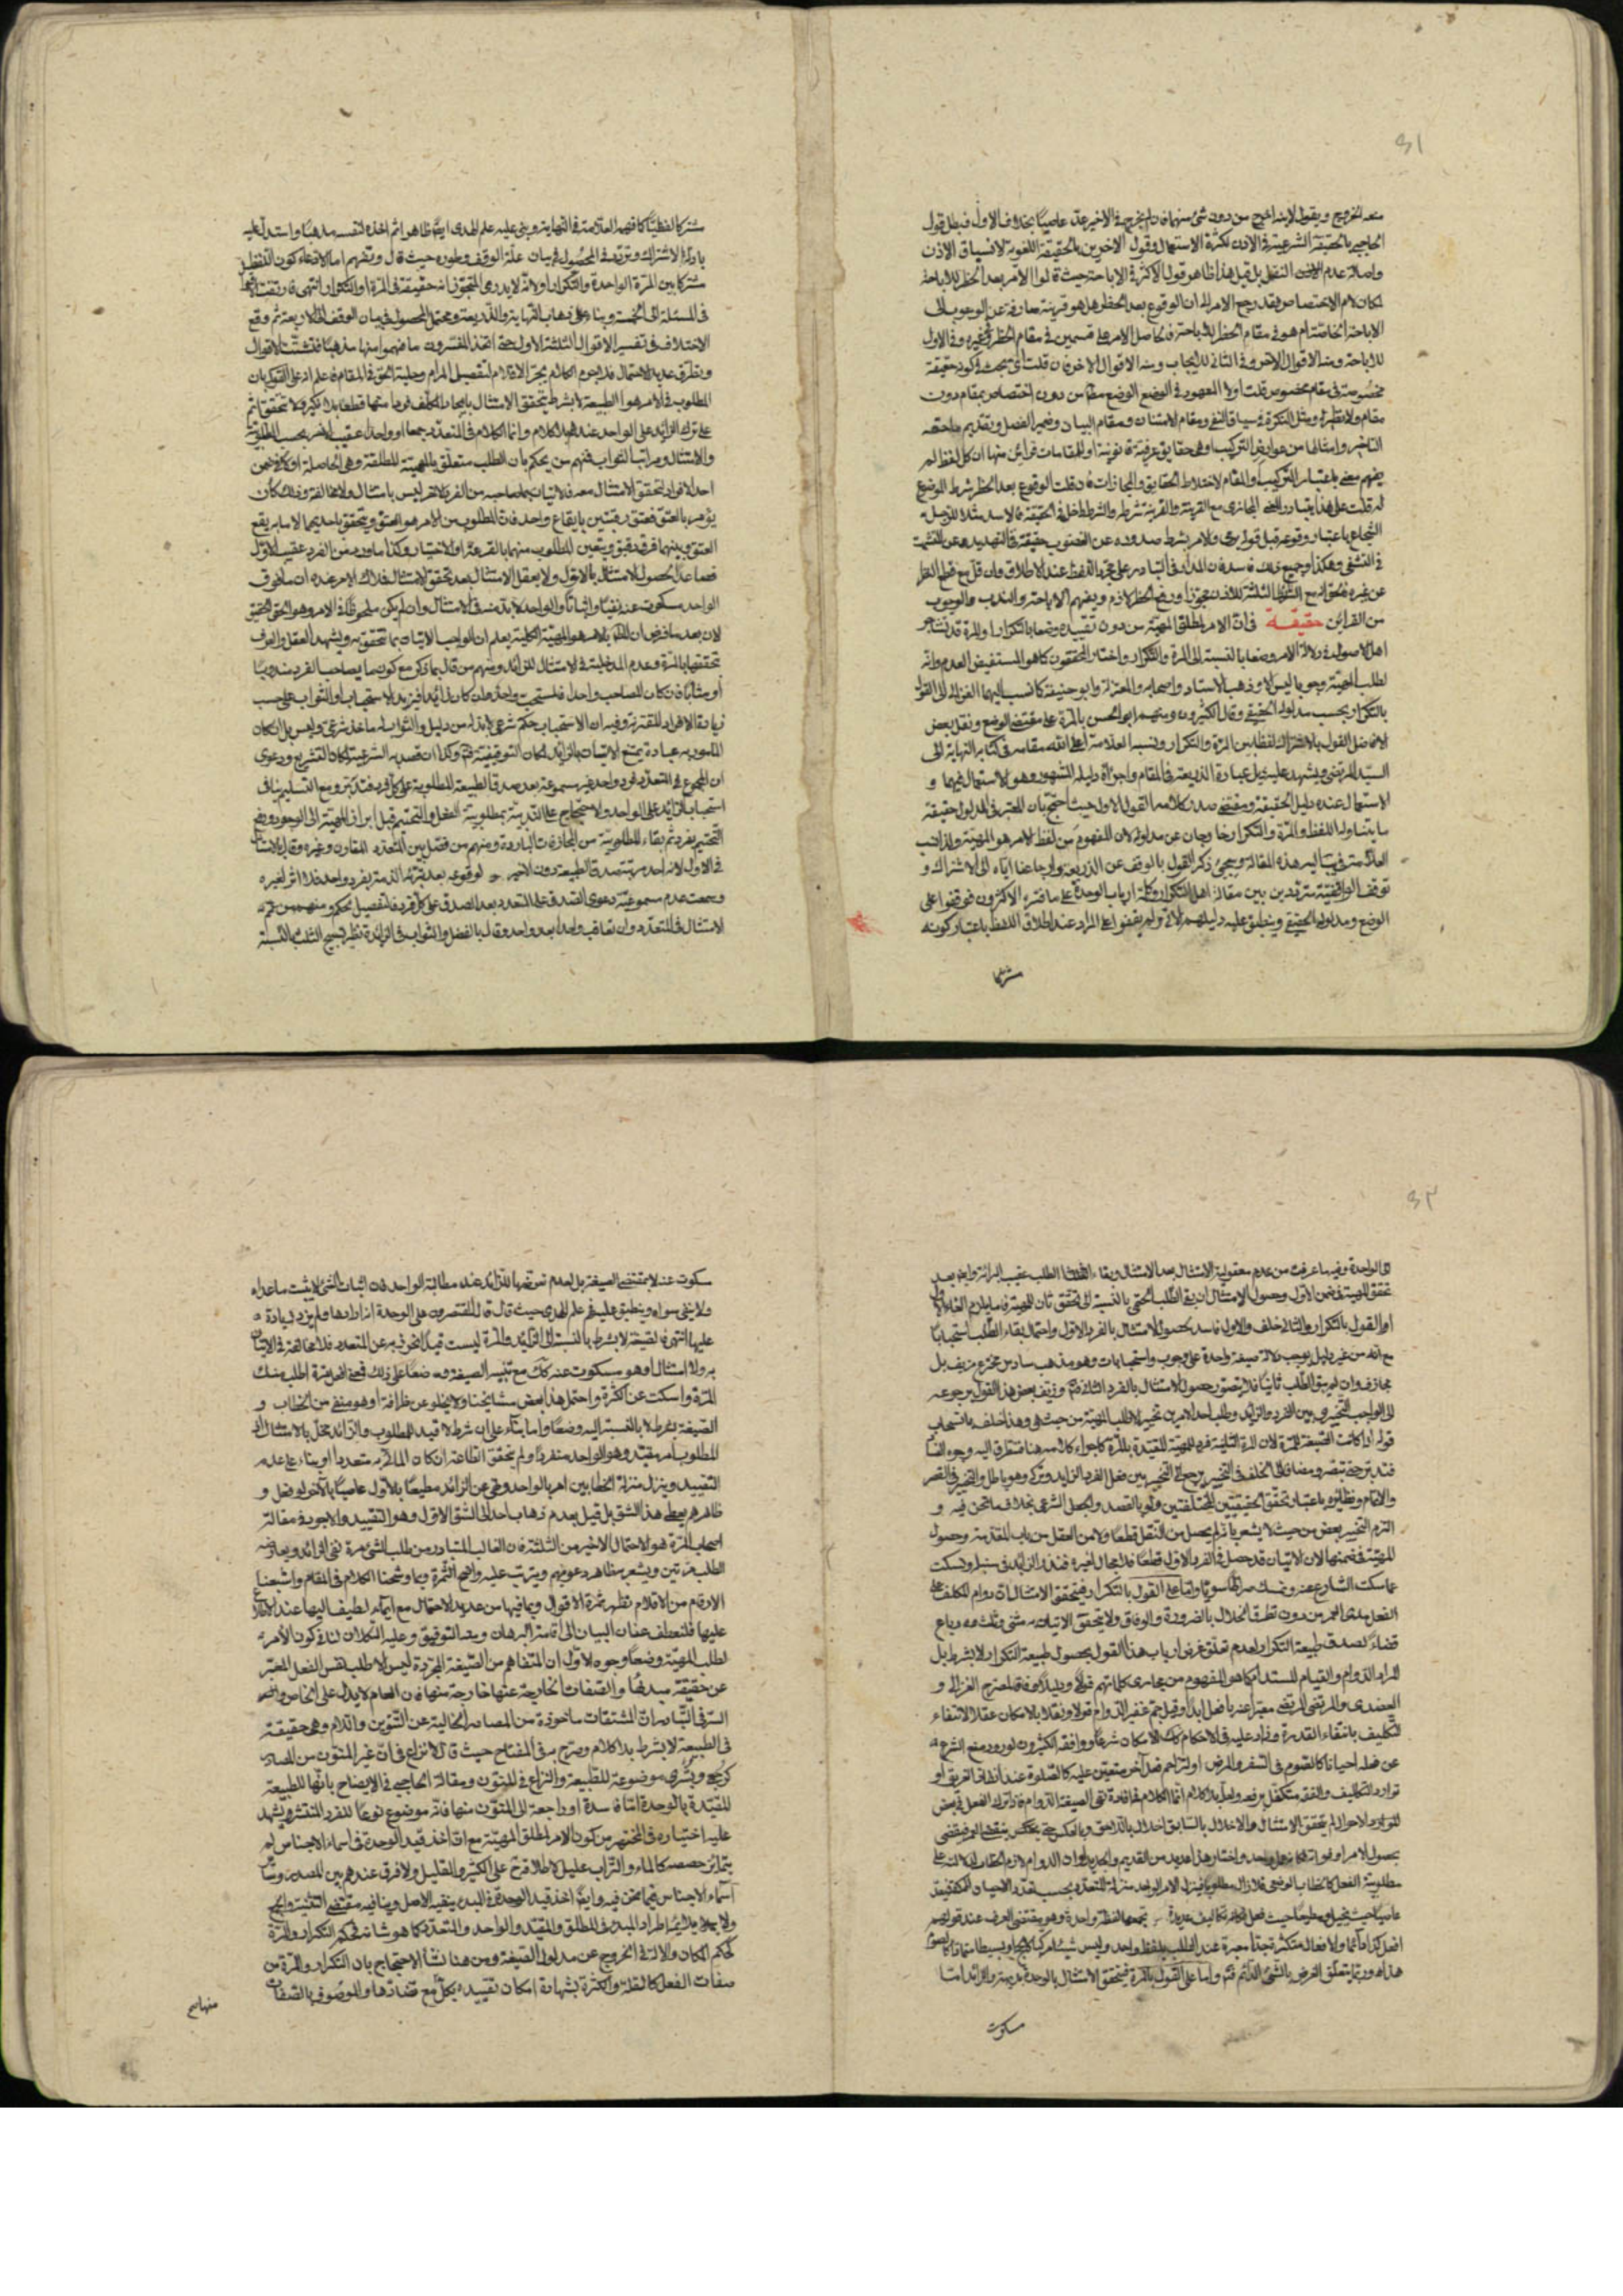 ٣١
منعه الخروج ويقول لابنه اخرج من دون شئ منهما فان لم يخرج في الاخير عد عاصيا بخلاف الاول فبطل قول
الحاجبي بالحقيقة الشرعية في الاذن لكثرة الاستعمال وقول الاخرين بالحقيقة اللغوية لانسياق الاذن
واصالة عدم النقل بل قيل هذا ظاهر قول الاكثر في الاباحة حيث قالوا الامر بعد الحظر للاباحة
لمكان لام الاختصاص فقد رجع الامر الى ان الوقوع بعد الحظر هل هو قرينة صارفة عن الوجوب الى
الاباحة الخاصة ام هو في مقام الحظر للاباحة فحاصل الامر على قسمين في مقام الحظر وغيره وفي الاول
للاباحة ومنه الاقوال الاخر وفي الثاني للايجاب ومنه الاقوال الاخر فان قلت اي بحث في كونه حقيقة
مخصوصة في مقام مخصوص قلت اولا المعهود في الوضع الوضع من دون اختصاص بمقام دون
مقام ومثل النكرة في سياق النفي ومقام الامتنان ومقام البيان وضمير الفصل وتقديم ما حقه
التاخير وامثالها من عوارض التركيب وهي حقايق عرفية قانونية او المقامات قرائن منها ان كل لفظ لم
يفهم معنى باعتبار التركيب والمقام لاختلاط الحقايق والمجازات فان قلت الوقوع بعد الحظر شرط الوضع
له قلت على هذا يتبادر المعنى المجازي مع القرينة والقرينة شرطه والشرط داخل في الحقيقة فالاسد مثلا للرجل
الشجاع باعتبار وقوعه قبل قولنا يرمي والامر بشرط صدوره عن الغضوب حقيقة في التهديد
في التشفي وهكذا وجميع ذلك فاسد فان المدار في التبادر على مجرد اللفظ عند الاطلاق وان قل مع قطع النظر
عن غيره للاذن مجوزا ورفع الحظر لازم ويفهم الاباحة والندب والوجوب
من القرائن حقيقة في ان الامر لمطلق المهية من دون تقييده وضعا بالتكرار او المرة قد تشاجر
اهل الاصول في دلالة الامر وضعا بالنسبة الى المرة والتكرار واختار المحققون كما هو المستفيض العدم وانه
لطلب المهية وجوبا ليس الا وذهب الاستاد واصحابه والمعتزلة وابو حنيفة كما نسب اليهما الغزالي الى القول
بالتكرار بحسب مدلوله الحقيقي وقال اكثيرون ومنهم ابو الحسن بالمرة على مقتضى الوضع ونقل بعض
الافاضل القول بالاشتراك لفظا بين المرة والتكرار ونسبه العلامة اعلى الله مقامه في كتابه النهاية الى
السيد المرتضى ويشهد عليه ذيل عبارة الذريعة في المقام واجراؤه دليله المشهور وهو الاستعمال فيهما و
الاستعمال عنده دليل الحقيقة ومقتضى صدر كلامه القول الاول حيث احتج بان المعتبر في المدلول حقيقة
ما يتناوله اللفظ والمرة والتكرار خارجان عن مدلوله لان المفهوم من لفظ الامر هو المهية ولذا نسب
العلامة في تهذيبه هذه المقالة ويجئ ذكر القول بالوقف عن الذريعة وارجاعنا اياه الى الاشتراك و
توقف الواقفية مترددين بين مقالة اهل التكرار وكلمة ارباب الوحدة على ما فسره الاكثرون فوقفوا على
الوضع ومدلوله الحقيقي وينطبق عليه دليلهم الاتي ولم يقفوا على المراد عند اطلاق اللفظ باعتبار كونه
مشتركا
مشتركا لفظيا كما فهمه العلامة في النهاية وبنى عليه علم الهدى ايضا ظاهرا ثم اخذه لنفسه مذهبا واستدل عليه
بادلة الاشتراك وتردد في المحصول في بيان علة الوقف وطوره حيث قال وتفهم اما لادعاء كون اللفظ
مشتركا بين المرة الواحدة والتكرار او لانه لا يدري المتوقف انه حقيقة في المرة او التكرار انتهى فارتقت الاقوال
في المسئلة الى الخمسة وبناء على ذهاب النهاية والذريعة ومحتمل المحصول في بيان الوقف الى الاربعة ثم وقع
الاختلاف في تفسير الاقوال الثلثة الاول حتى اتخذ المفسرون ما فهموا منها مذهبا فتشتت الاقوال
وتطرق عديد الاحتمال فلا جرم الكلام يجر الاقلام لتفصيل المرام وجلية الحق في المقام فاعلم انه على القول بان
المطلوب في الامر هو الطبيعة لا بشرط يتحقق الامتثال بايجاد المكلف فردا منها قطعا بلا نكير ولا تحقق اثم
على ترك الزائد على الواحد عندهم بلا كلام وانما الكلام في المتعدد جمعا او واحدا عقيب الاخر بحسب المطلوبية
والامتثال ومراتب الثواب فمنهم من يحكم بان الطلب متعلق بالمهية المطلقة وهي الحاصلة اولا في ضمن
احد الافراد لتحقق الامتثال معه فالاتيان بما صاحبه من الفرد الاخر ليس بامتثال ولا مخالفة وذلك كأن
يؤمر بالعتق فعتق رقبتين بايقاع واحد فان المطلوب من الامر هو العتق ويتحقق باحديهما الا ما به يقع
العتق وبينهما فرق دقيق ويتعين المطلوب منهما بالقرعة او الاختيار وكذا ما وجد من الفرد عقيب الاول
فصاعدا لحصول الامتثال بالاول ولا يعقل الامتثال بعد تحقق الامتثال فلذلك الامر عنده ان ما فوق
الواحد مسكوت عنه نفيا واثباتا والواحد لا بد منه في الامتثال وان لم يكن ملحوظا في الامر وهو الحق الحقيق
لان بعد ما فرض ان الامر هو المهية الكلية يعلم ان الواجب الاتيان بما تتحقق به ويشهد العقل والعرف
تحققها بالمرة وعدم المدخلية في الامتثال للزائد ومنهم من قال بما ذكر مع كون ما يصاحب الفرد مندوبا
او مثابا فان كان المصاحب واحدا فمستحب واحد وان كان زائدا فيزيد الاستحباب او الثواب على حسب
زيادة الافراد المقترنة وفيه ان الاستحباب حكم شرعي لا بد له من دليل والثواب له ماخذ شرعي وليس بل ان كان
المامور به عبادة يمتنع الاتيان بالزائد لمكان التوقيفية فتم وكذا ان قصد به الشرعية لمكان التشريع ودعوى
ان المجموع في التعدد فرد واحد غير مسموعة بعد صدق الطبيعة المطلوبة على كل فرد فتدبر ومع التسليم ينافي
استحباب الزائد على الواحد والاحتجاج على القديمة بمطلوبية الفعل والتحتم قبل ابراز المهية الى الوجود ورفع
التحتم بفرد ثم بقاء المطلوبية من المجازفات الباردة ومنهم من فصل بين المتعدد المقارن وغيره وقال بالامتثال
في الاول لانه احد مرتبتي صدق الطبيعة دون الاخير لوقوعه بعد برائة الذمة بفرد واحد فلا اثر لغيره
وسمعت عدم مسموعية دعوى الصدق على المتعدد بعد الصدق على كل فرد فالتفصيل تحكم ومنهم من عمم
الامتثال في المتعدد وان تعاقب واحدا بعد واحد وقال بالفضل والثواب في الزائدة نظير تسبيح الثلث بالنسبة
٣٢
الى الواحدة وفيه ما عرفت من عدم معقولية الامتثال بعد الامتثال وبقاء الطلب عقيب البرائة وايضا بعد
تحقق المهية في ضمن الاول وحصول الامتثال ان بقي الطلب الحتمي بالنسبة الى تحقق ثان للمهية فاما يلزم الغاء الاول
او القول بالتكرار والثاني خلف والاول فاسد بحصول الامتثال بالفرد الاول واحتمال بقاء الطلب استحبابا
مع انه من غير دليل يوجب دلالة صيغة واحدة على وجوب واستحبابات وهو مذهب سادس مخترع مزيف بل
مجازف وان لم يبق الطلب ثانيا فلا يتصور حصول الامتثال بالفرد الثاني فتم وزيف بعض هذا القول برجوعه
الى الواجب التخيري بين الفرد والزائد وطلب احد الامرين تخييرا لا طلب المهية من حيث هي وهذا خلف
قوله اذا كانت الصيغة للمرة لان المرة الثانية فرد للمهية المقيدة بالمرة كاجراء كلامه هنا فتطرق اليه وجوه الفساد
فتدبر حتى تبصر ومضافا الى الخلف في التخيير يرجع الى التخيير بين فعل الفرد الزائد وتركه وهو باطل والتخيير في القصر
والاتمام ونظائره باعتبار تحقق الحقيقتين المختلفتين ولو بالقصد والجعل الشرعي بخلاف ما نحن فيه و
التزم التخيير بعض من حيث لا يشعر بانه لم يحصل من النقل قطعا ولا من العقل من باب المقدمة وحصول
المهية في ضمنها لان الاتيان قد حصل في الفرد الاول قطعا فلا مجال لغيره فنذر الزائد في سنبله ونسكت
عما سكت الشارع عنه ونمسك صراطا سويا واما على القول بالتكرار فيتحقق الامتثالات دوام المكلف على
الفعل مدى العمر من دون تطرق اخلال بالضرورة والوفاق ولا يتحقق الاتيان به مثنى وثلث ورباع
قضاء لصدق طبيعة التكرار لعدم تعلق غرض ارباب هذا القول بحصول طبيعة التكرار لا بشرط بل
المراد الدوام والقيام المستدام كما هو المفهوم من مجاري كلماتهم قولا ودليلا وفاقا لصريح الغزالي و
العضدي والمرتضى معبرا عنه بافعل ابدا وقيل جم غفير الدوام قولا ونقلا بالامكان عقلا لانتفاء
التكليف بانتفاء القدرة وزاد عليه في الاحكام ذلك الامكان شرعا ووافقه اكثيرون لورود منع الشرع
عن فعله احيانا كالصوم في السفر والمرض او لتزاحم فعل آخر متعين عليه كالصلوة عند انقاذ الغريق او
توارد التكاليف والفقه متكفل برفعه واصلا بلا كلام انما الكلام في افادة نفي الصيغة الدوام فاذا ترك الفعل في بعض
الموارد والاحوال لم يتحقق الامتثال والاخلال بالسابق اخلال باللاحق وبالعكس حتى ينعكس بنقيضه
بحصول الامر او فواته واختار هل العديد من القديم والجديد ان الدوام لازم الخطاب لدلالته على
مطلوبية الفعل كالخطاب الوضعي فلا زال مطلوبا فينزل الامر الواحد منزلة المتعدد بحسب تعدد الاحيان
عاصيا حيث يخل ومطيعا حيث فعل فكانه تكاليف عديدة يجمعها لفظة واحدة وهو مقتضى العرف عند قولهم
افعل كذا دائما والافعال متكثرة جدا معبرة عند الطلب بلفظ واحد وليس شيئا مركبا او بسيطا
هذا وربما يتعلق الغرض بالشئ الدائم فتم واما على القول بالمرة فيتحقق الامتثال بالوحدة والزائد اما
مسكوت
سكوت عنه لا بمقتضى الصيغة بل لعدم تعرضها للزائد عند مطالبة الواحد فان اثبات الشئ لا يثبت ما عداه
ولا ينفي سواه وينطبق عليه علم الهدى حيث قال قال المقتصرون على الوحدة اذا ارادها ولم يزد لزيادة
عليها انتهى فالصيغة لا بشرط بالنسبة الى الزائد والمرة ليست قيدا تحرز به عن المتعدد فلا مخالفة في الاتيان
به ولا امتثال او هو مسكوت عنه كذلك مع تنبيه الصيغة وضعا على ذلك فمعنى افعل اطلب منك
المرة واسكت عن الكثرة واحتمل هذا بعض مشايخنا ولا يخلو عن ظرافة او هو منفي من الخطاب و
الصيغة بشرط لا بالنسبة اليه وضعا واما بناء على ان شرط لا قيد للمطلوب والزائد مخل بالامتثال لان
المطلوب امر مقيد وهو الواحد منفردا ولم تتحقق الطاعة ان كان الماتي به متعددا او بناء على عدم
التقييد وينزل منزلة الخطابين امر بالواحد ونهي عن الزائد مطيعا بالاول عاصيا بالآخر لو فعل و
ظاهرهم يعطي هذا الشق بل قيل بعدم ذهاب احد الى الشق الاول وهو التقييد والاجود في مقالة
اصحاب المرة هو الاحتمال الاخير من الثلثة فان الغالب المتبادر من طلب الشئ مرة نفي الزائد ويعارضه
الطلب مرتين ويشعر به ظاهر دعويهم ويترتب عليه واضح الثمرة وبما وشحنا الكلام في المقام واشبعنا
الارقام من الاقلام تظهر ثمرة الاقوال وبما فيها من عديد الاحتمال مع ايماء لطيف اليها عند الادلة
عليها فلنعطف عنان البيان الى اقامة البرهان وبعد التوفيق وعليه التكلان لنا في كون الامر
لطلب المهية وضعا وجوه الاول ان المتفاهم من الصيغة المجردة ليس الا طلب نفس الفعل المعبر
عن حقيقة مبدئها والصفات الخارجة عنها خارجة منها فان العام لا يدل على الخاص واوضح
السر في التبادر ان المشتقات ماخوذة من المصادر الخالية عن التنوين واللام وهي حقيقة
في الطبيعة لا بشرط بلا كلام وصرح به في المفتاح حيث قال لا نزاع في ان غير المنون من المصادر
كرجعى وبشرى موضوعة للطبيعة والنزاع في المنون ومقالة الحاجبي في الايضاح بانها للطبيعة
المقيدة بالوحدة اما فاسدة او راجعة الى المنون منها فانه موضوع نوعا للفرد المنتشر ويشهد
عليه اختياره في المختصر من كون الامر لمطلق المهية مع ان اخذ قيد الوحدة في اسماء الاجناس لم
يتمايز حصصه كالماء والتراب عليل لاطلاقه على الكثير والقليل ولا فرق عندهم بين المصدر وسائر
اسماء الاجناس فيما نحن فيه وايضا اخذ قيد الوحدة في المبدء ينفيه الاصل وينافيه مقتضى التثنية والجمع
اطراد المبدء في المطلق والمقيد والواحد والمتعدد كما هو شانه فحكم التكرار والمرة
كحكم المكان والآلة في الخروج عن مدلول الصيغة ومن هنا نشأ الاحتجاج بان التكرار والمرة من
صفات الفعل كالقلة والكثرة بشهادة امكان تقييده بكل مع تضادها والموصوف بالصفات
منهاج